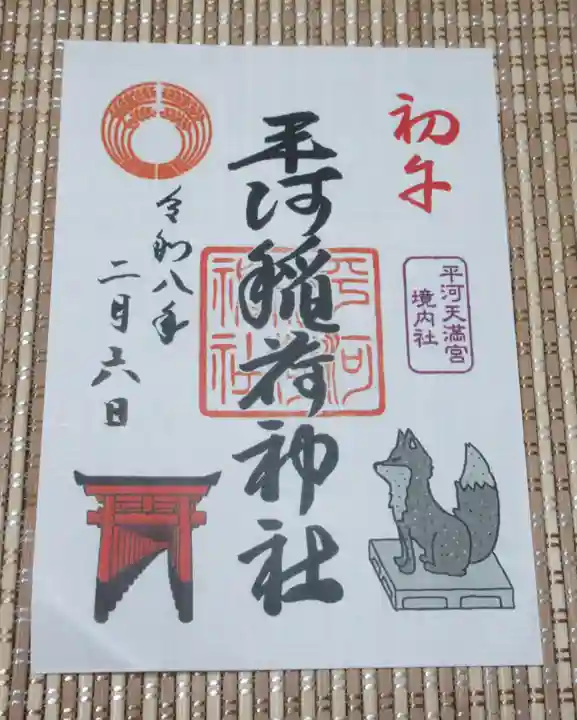 初午
平河天満宮
境内社
平河稲荷神社
平河
稲荷
神社
令和八年
二月六日